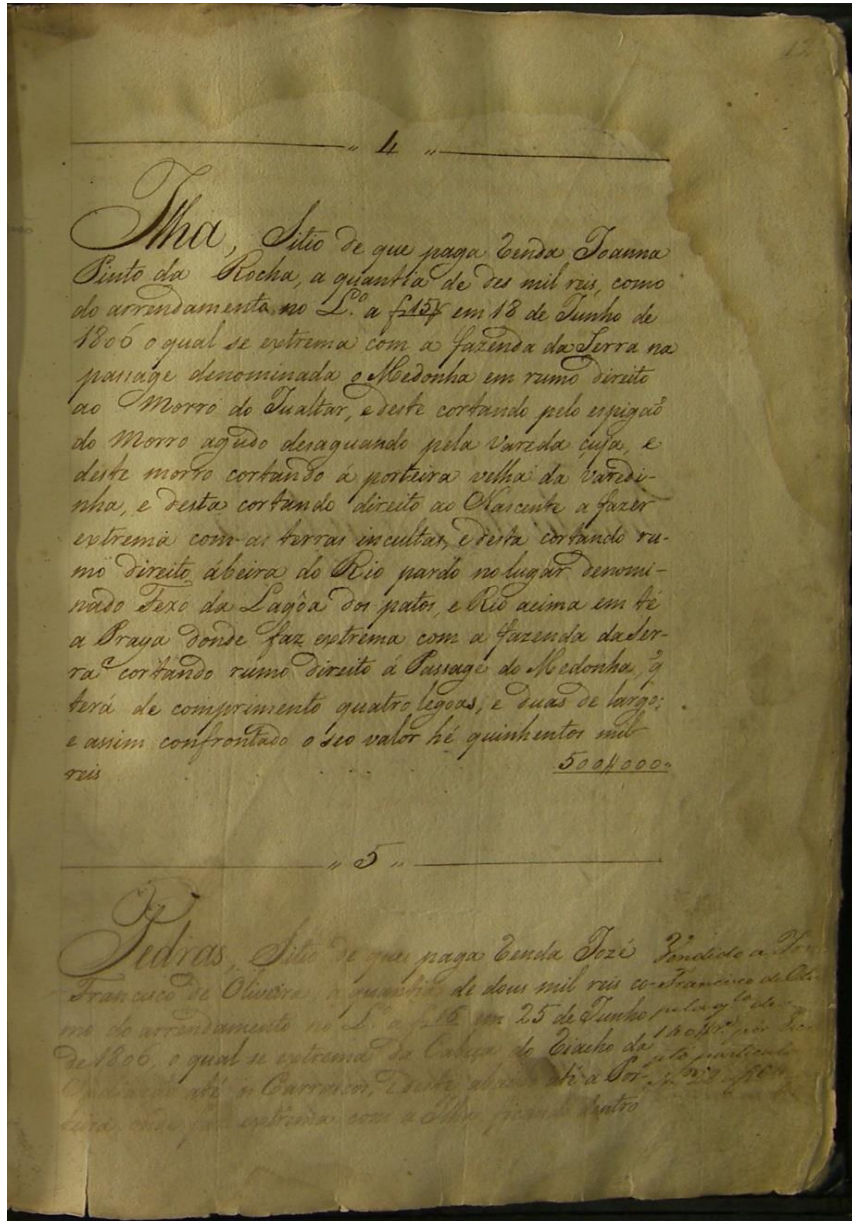 12
" 4 "
Ilha, Sitio de que paga Renda Joanna
Pinto da Rocha, a quantia de des mil reis, como
do arrendamento no L.º a f 15 em 18 de Junho de
1806 o qual se extrema com a fazenda da Serra na
passage denominada o Medonha em rumo direito
ao Morro do Jualtar, e deste cortando pelo espigaõ
do Morro agudo desaguando pela Vareda çuja, e
deste morro cortando á porteira velha da Varedi-
nha, e desta cortando direito ao Nascente a fazer
extrema com as terras incultas, e desta cortando ru-
mo direito ábeira do Rio pardo no lugar denomi-
nado Fexo da Lagôa dos patos, e Rio acima em té
a Praya donde faz extrema com a fazenda da Ser-
ra cortando rumo direito á Passage do Medonha, q̃
terá de comprimento quatro legoas, e duas de largo;
e assim confrontado o seo valor hé quinhentos mil
reis 500$000"
" 5 "
Pedras, Sitio de que paga Renda Jozé
Francisco de Oliveira, a quantia de dous mil reis co-
mo do arrendamento no L.º a f 16 em 25 de Junho
de 1806, o qual se extrema da Cabeça do Riacho da
até os Carrascos, e deste abaixo até a Por-
teira onde faz extrema com a Ilha ficando dentro
Vendido a
Francisco de Oli
pela q.ta de